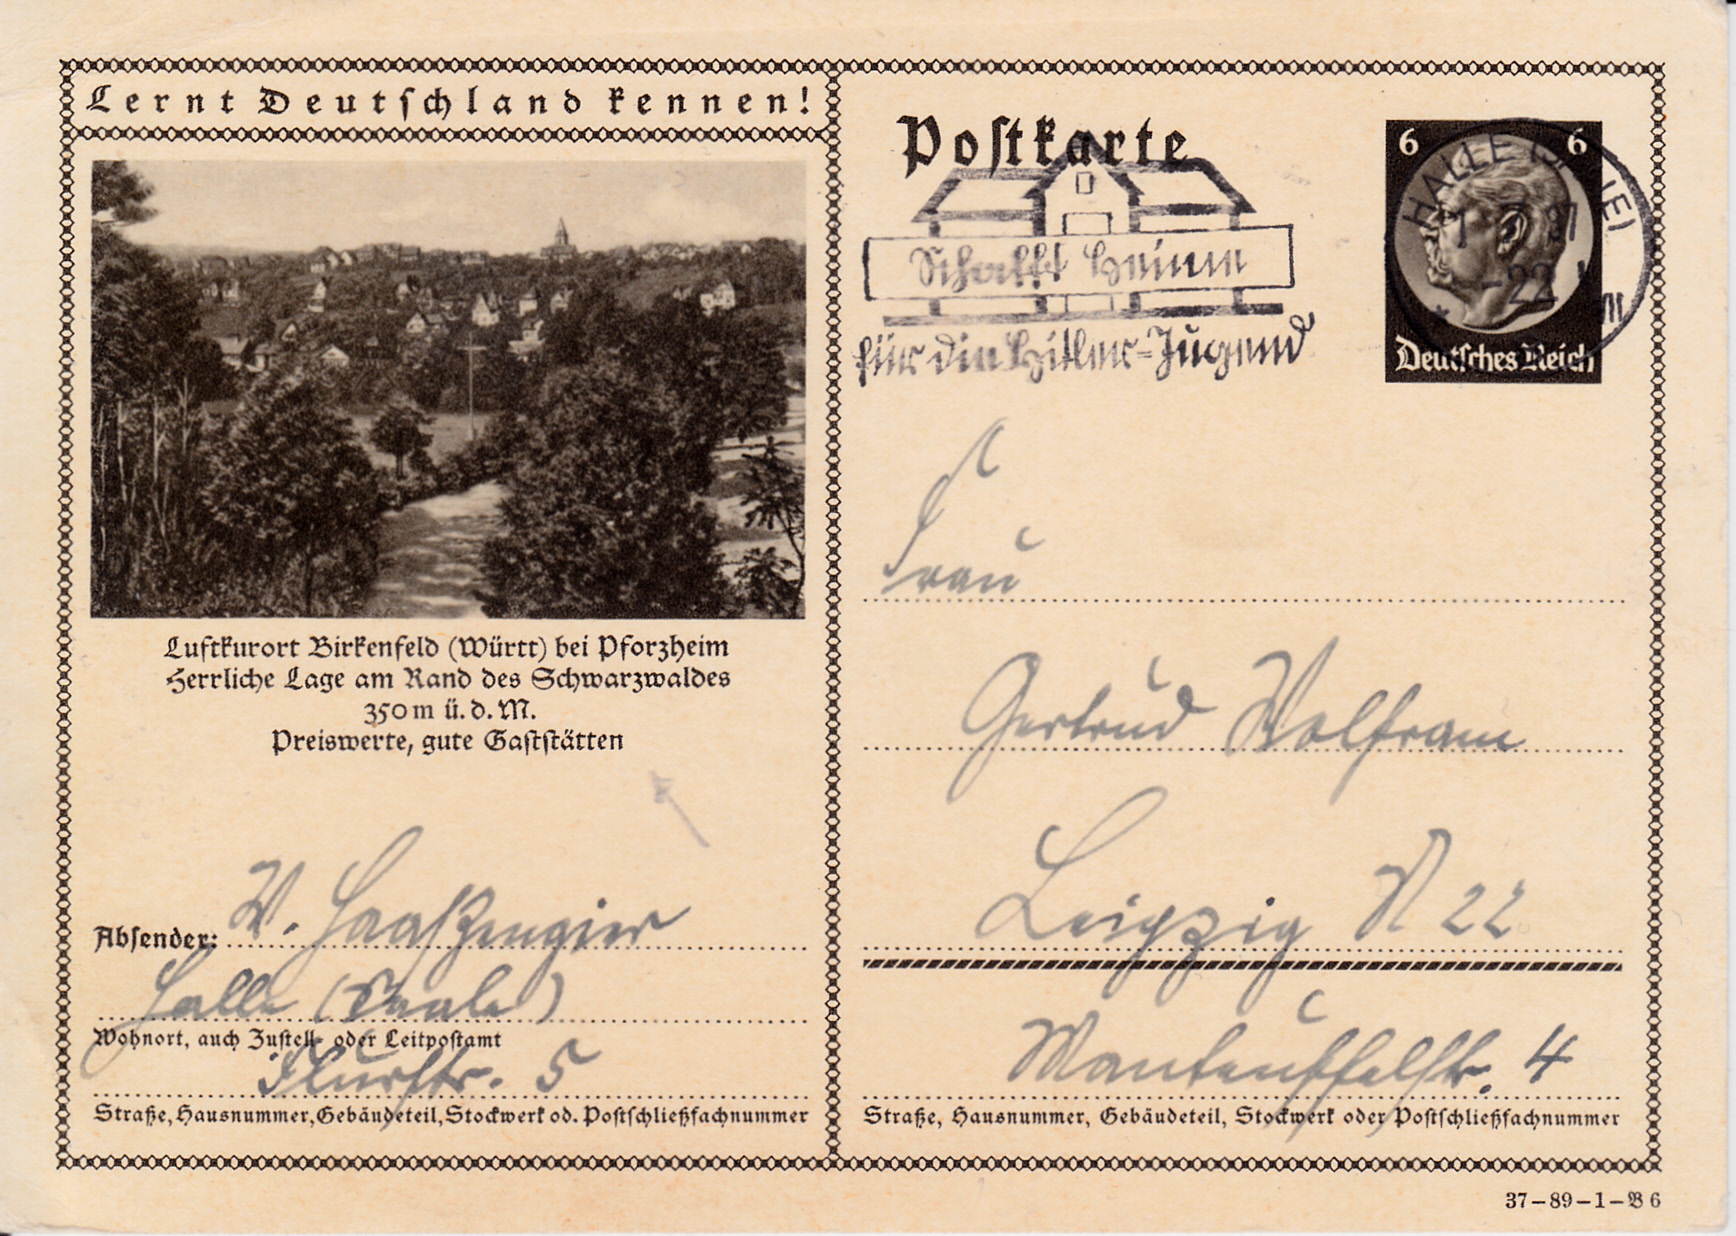 Lernt Deutschland kennen!
Luftkurort Birkenfeld (Württ) bei Pforzheim
Herrliche Lage am Rand des Schwarzwaldes
350 m ü. d. M.
Preiswerte, gute Gaststätten
Absender: W. Haaßengier
Halle (Saale)
Wohnort, auch Zustell- oder Leitpostamt
Flurstr. 5
Straße, Hausnummer, Gebäudeteil, Stockwerk od. Postschließfachnummer
Postkarte
Schafft Heime
für die Hitler-Jugend
6 6
HALLE
37
22
Deutsches Reich
Frau
Gertrud Wolfram
Leipzig N 22
Manteuffelstr. 4
Straße, Hausnummer, Gebäudeteil, Stockwerk oder Postschließfachnummer
37-89-1-B 6